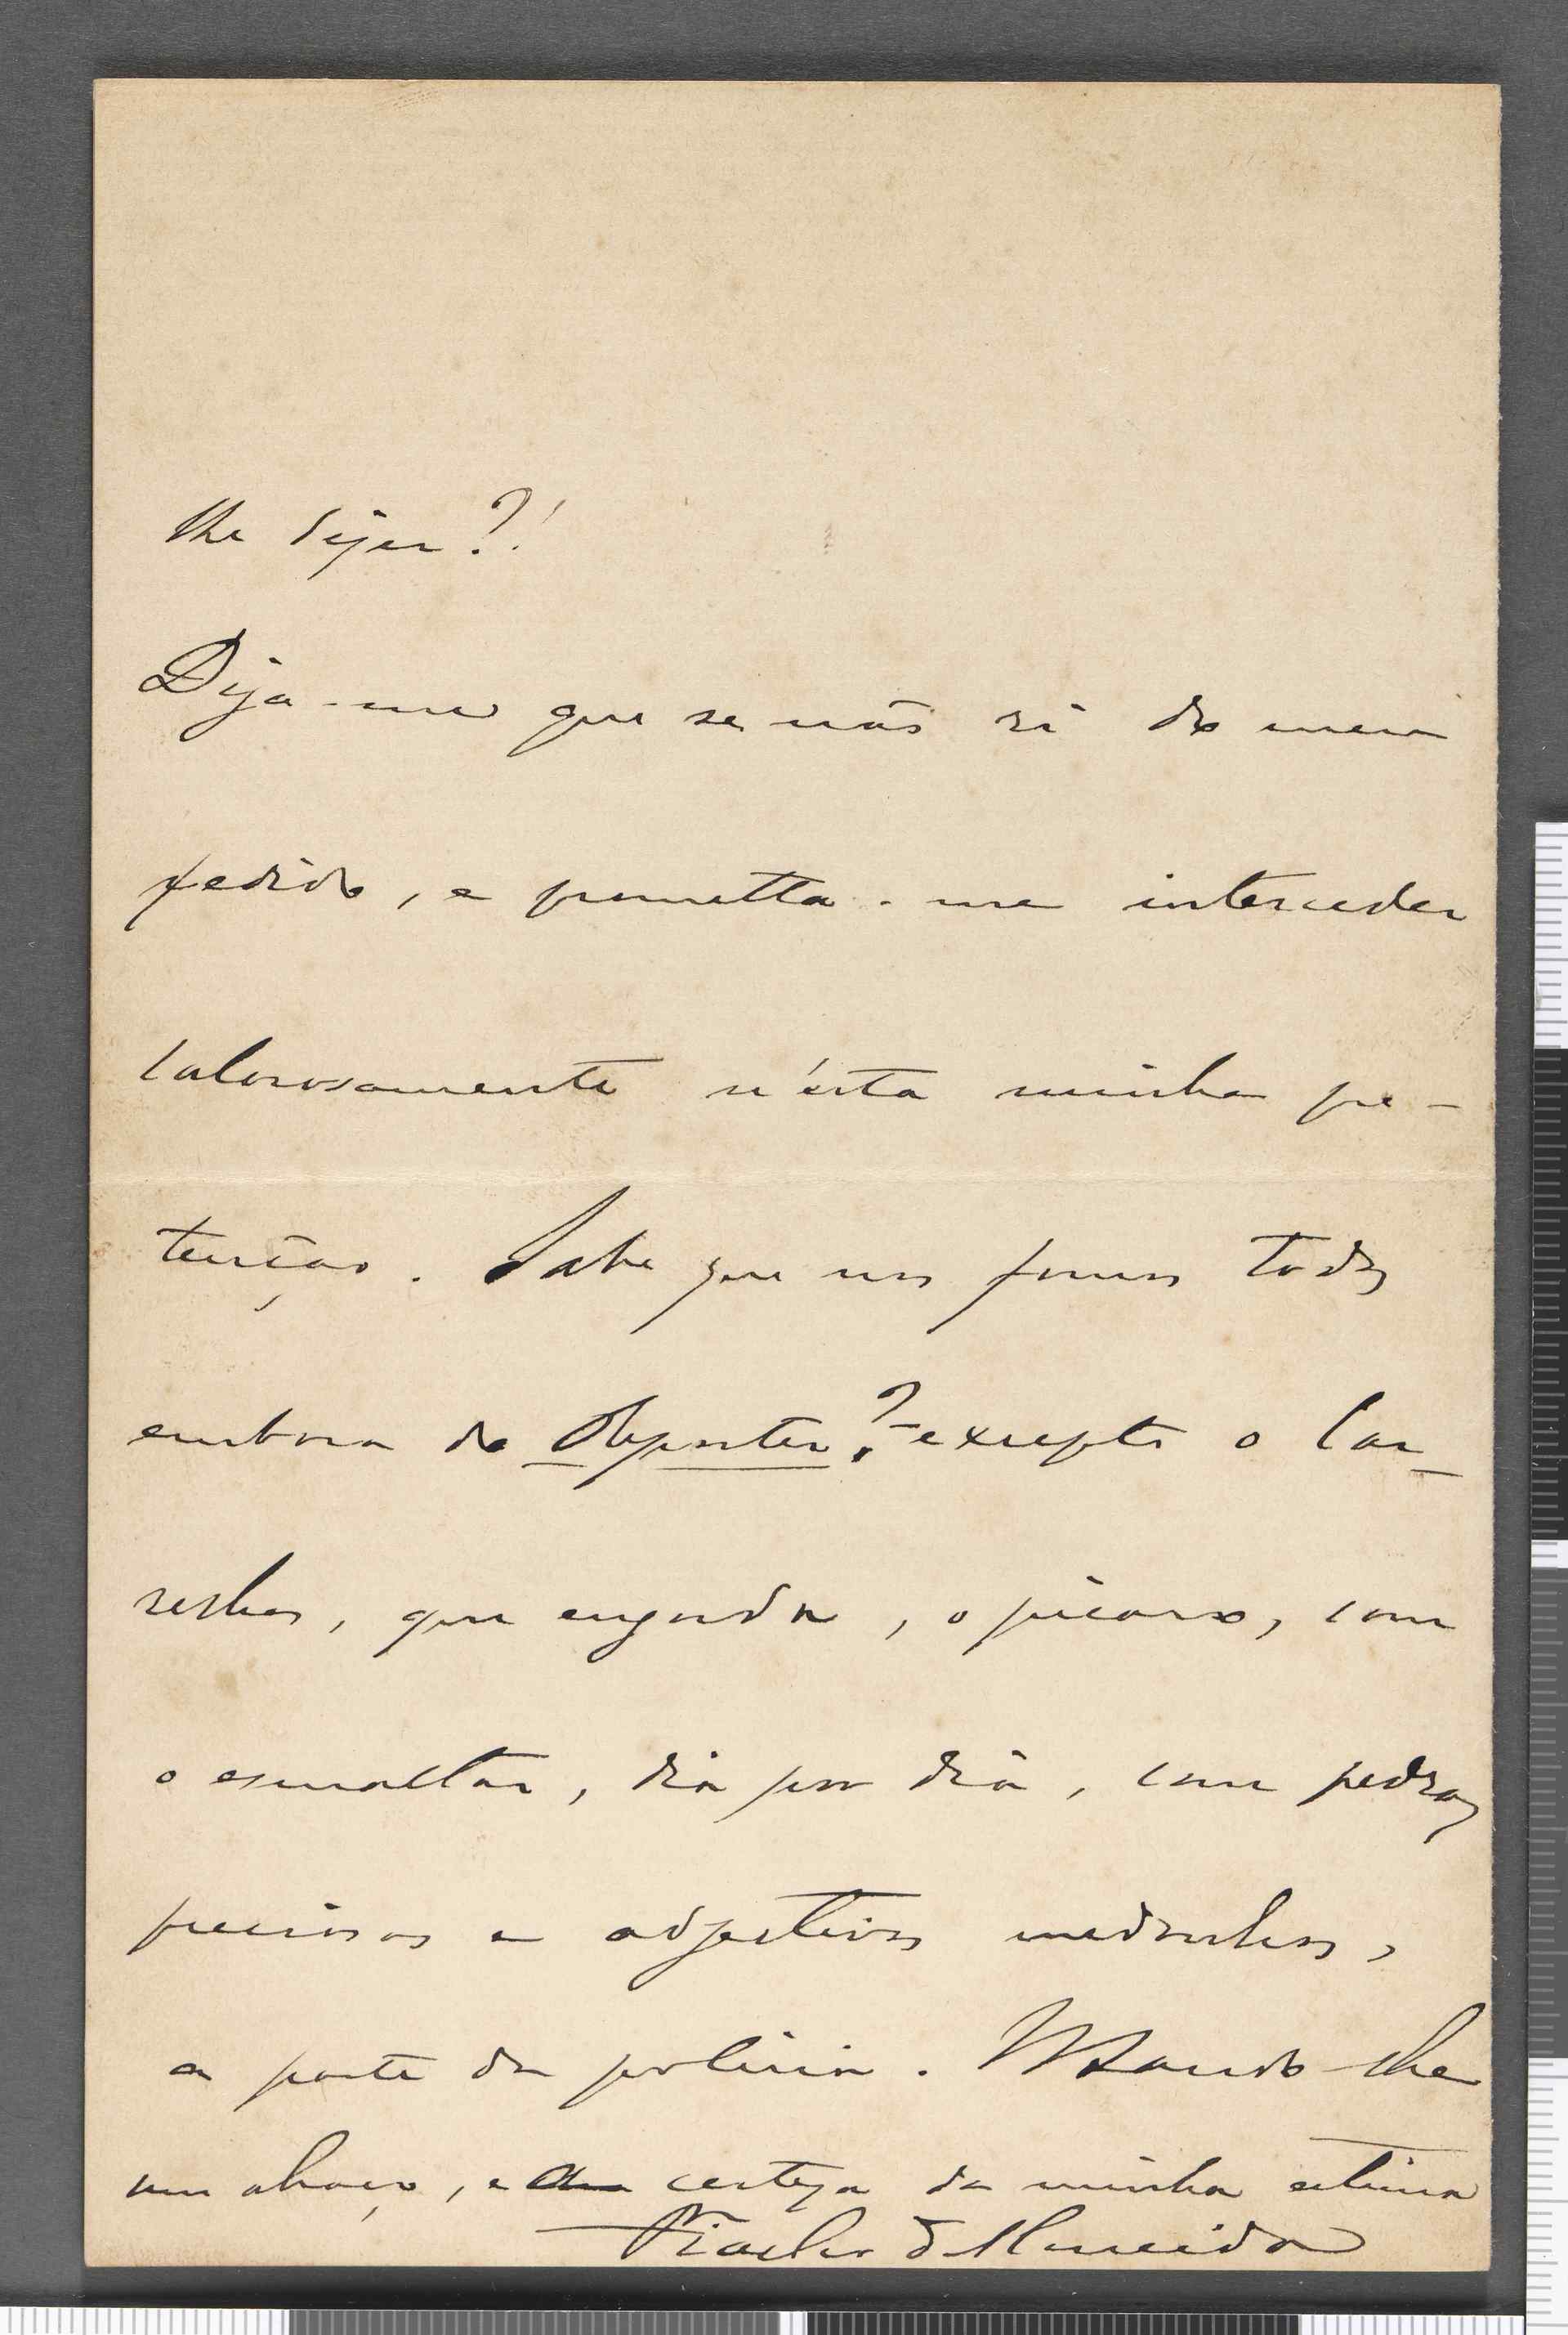 lhe dizer?!
Diga-me que se não ri do meu
pedido, e prometta-me interceder
calorosamente n'esta minha pre-
tenção. Sabe que nos fomos todos
embora do Reporter?-excepto o Car-
relhas, que engorda, o picaro, com
o esmaltar, dia por dia, com pedras
preciosas e adjectivos medonhos,
a parte da policia. Mando-lhe
um abraço, e a certeza da minha estima
Fialho d'Almeida